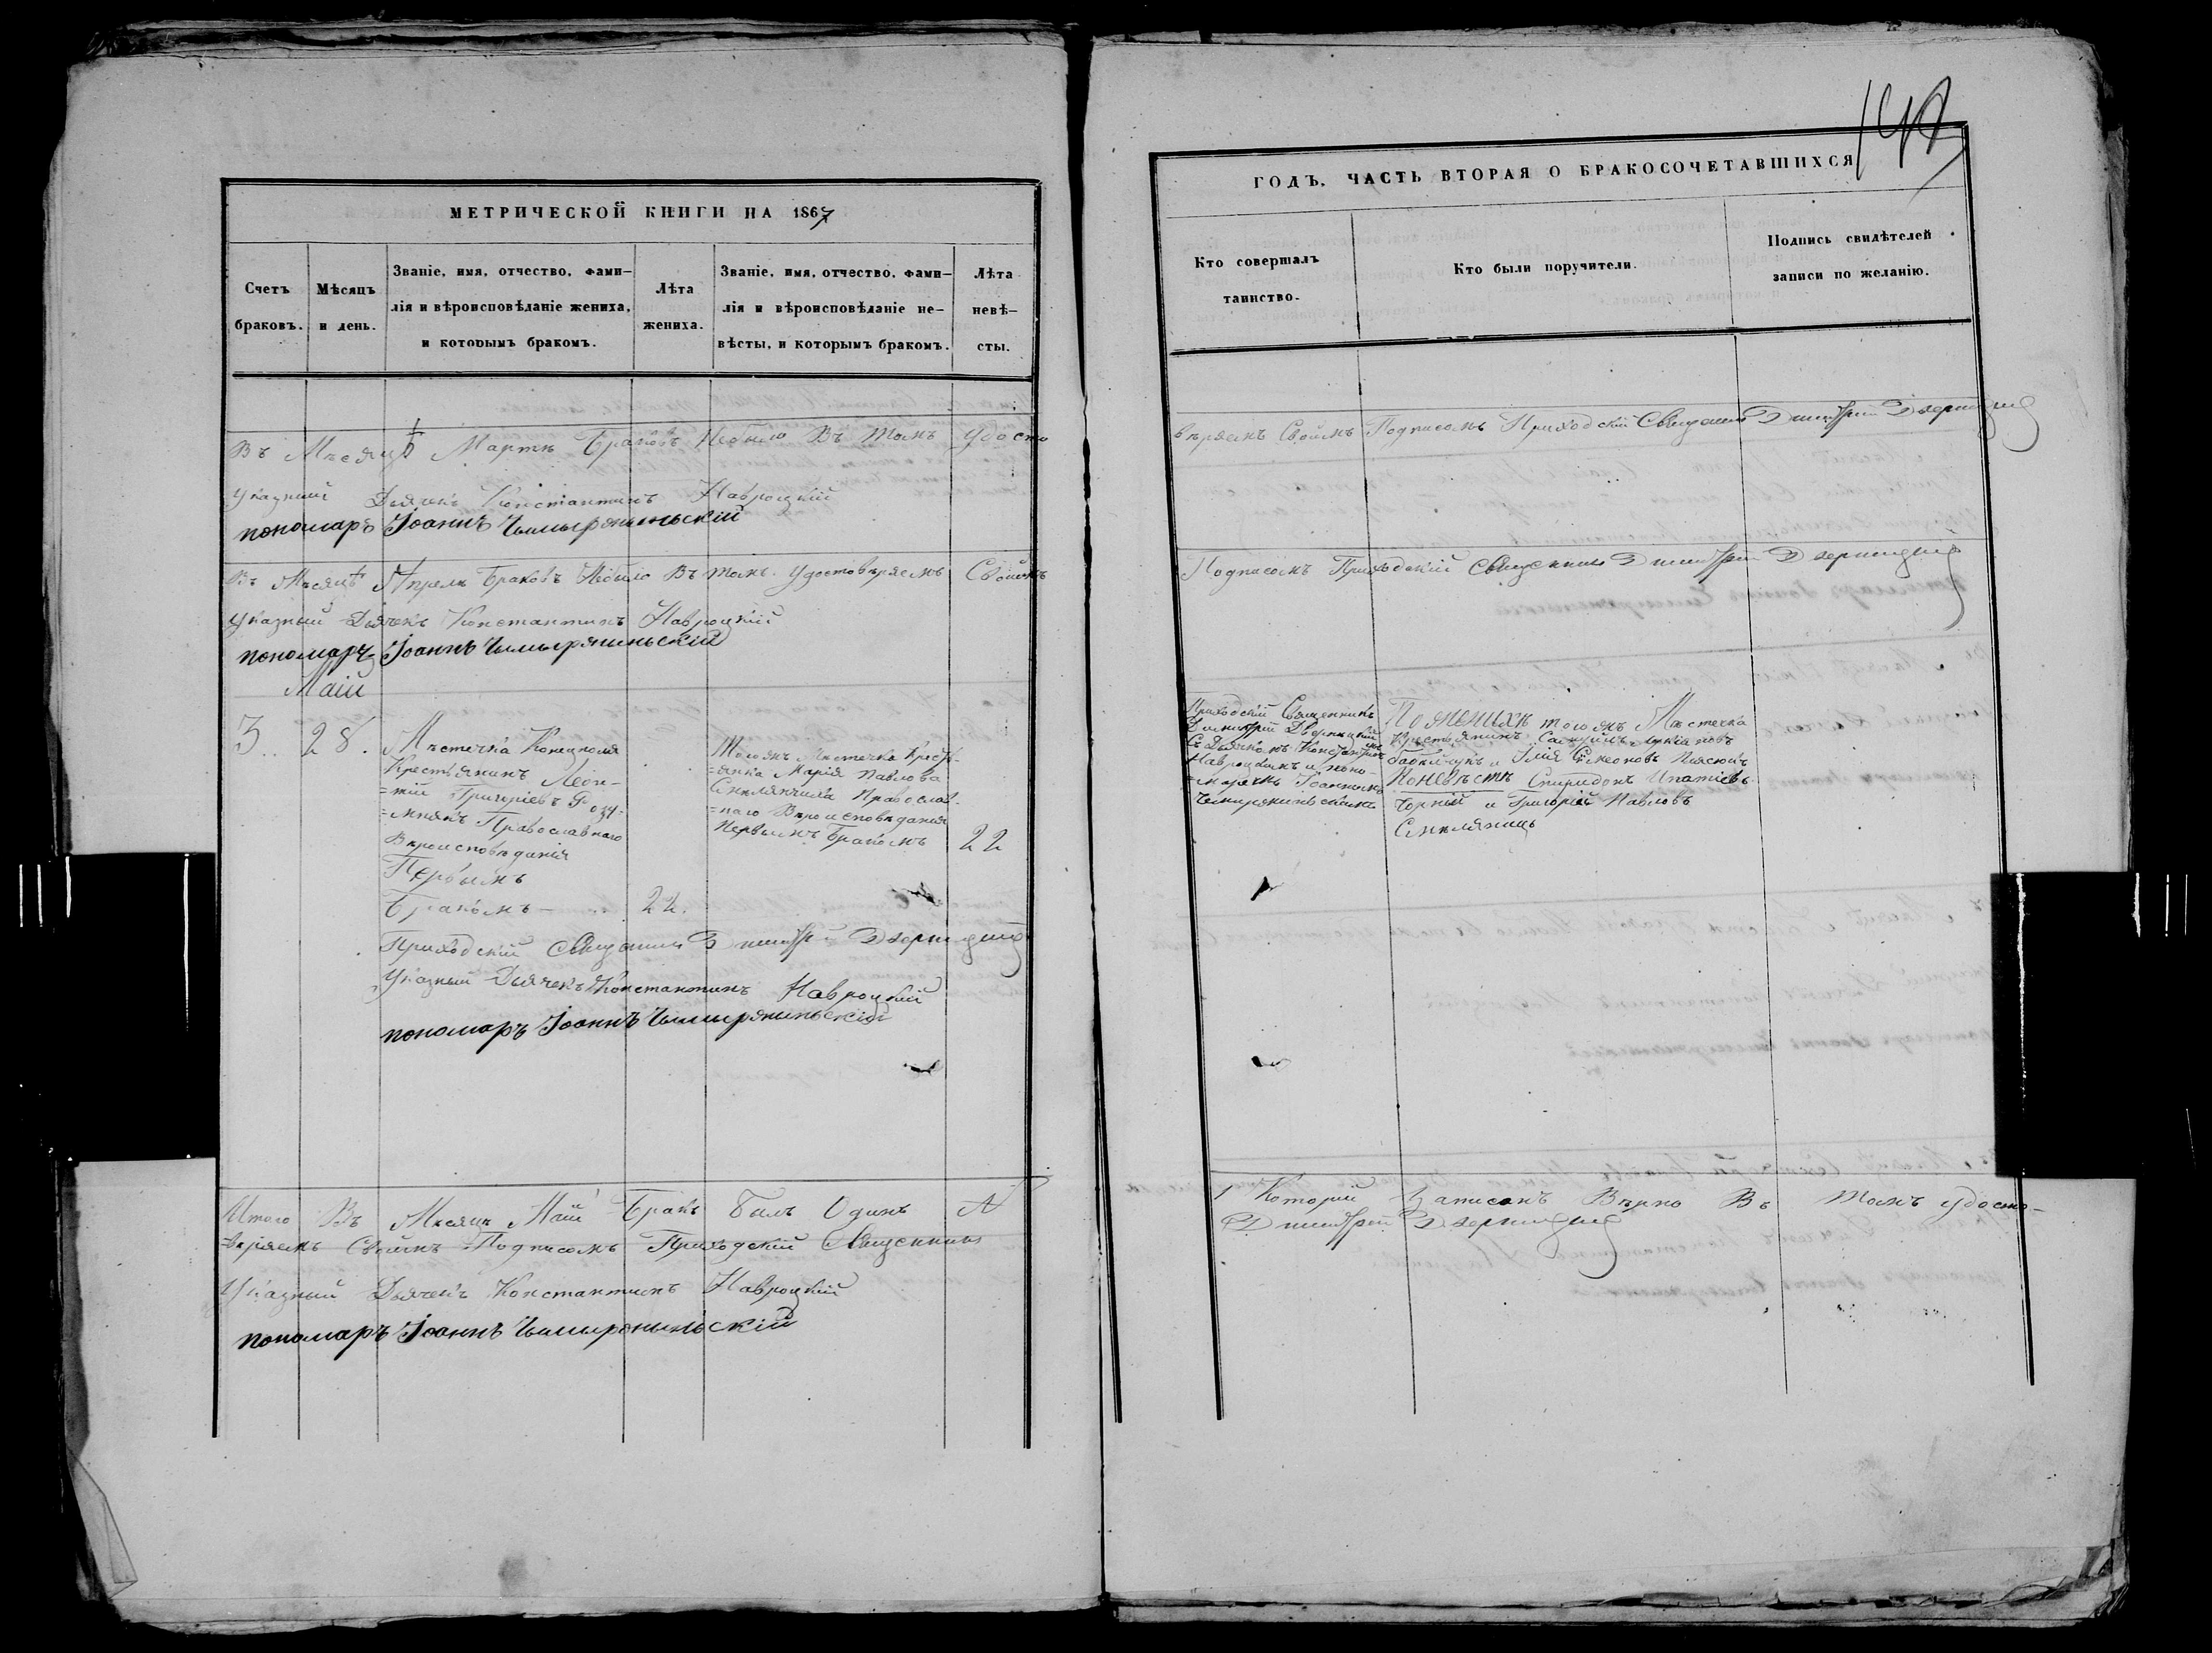 МЕТРИЧЕСКОЙ КНИГИ НА 1867
Счетъ браковъ.
Мѣсяцъ и день.
Званіе, имя, отчество, фами-
лія и вѣроисповѣданіе жениха,
и которымъ бракомъ.
Лѣта
жениха.
Званіе, имя, отчество, фами-
лія и вѣроисповѣданіе не-
вѣсты, и которымъ бракомъ.
Лѣта
невѣ-
сты.
Въ Мѣсяцѣ Мартѣ Браковъ Небыло Въ томъ Удосто
Указный Дьячекъ Константинъ Навроцкій
пономарь Іоаннъ
Въ Мѣсяцѣ Апрелѣ Браковъ Небыло Въ томъ Удостовѣряемъ Своимъ
Указный Дьячекъ Константинъ Навроцкій
пономарь Іоаннъ
Маій
3 28.
Мѣстечка Конецполя
Крестьянинъ Леон-
=тій Григоріевъ
Православнаго
Вѣроисповѣданія
Первымъ
Бракомъ 22.
Тогожъ Мѣстечка Кресть-
=янка Марія Павлова
Православ-
=наго Вѣроисповѣданія
Первымъ Бракомъ 22
Приходскій Священникъ Димитрій
Указный Дьячекъ Константинъ Навроцкій
пономарь Іоаннъ
Итого Въ Мѣсяцѣ Маій Бракъ Былъ Одинъ
=вѣряемъ Своимъ Подписомъ Приходскій Священникъ
Указный Дьячекъ Константинъ Навроцкій
пономарь Іоаннъ
ГОДЪ. ЧАСТЬ ВТОРАЯ О БРАКОСОЧЕТАВШИХСЯ
Кто совершалъ
таинство.
Кто были поручители.
Подпись свидѣтелей
записи по желанію.
вѣряемъ Своимъ Подписомъ Приходскій Священникъ Димитрій
Подписомъ Приходскій Священникъ Димитрій
Приходскій Священникъ
Димитрій
Съ Дьячкомъ Константиномъ
Навроцкимъ и поно-
=маремъ Іоанномъ
По женихѣ тогожъ Мѣстечка
Крестьянинъ
и Илія Симеоновъ
По невѣстѣ Спиридонъ Ипатіевъ
Чорній и Григорій Павловъ
1 Которій Записанъ Вѣрно Въ томъ удосто-
Димитрій